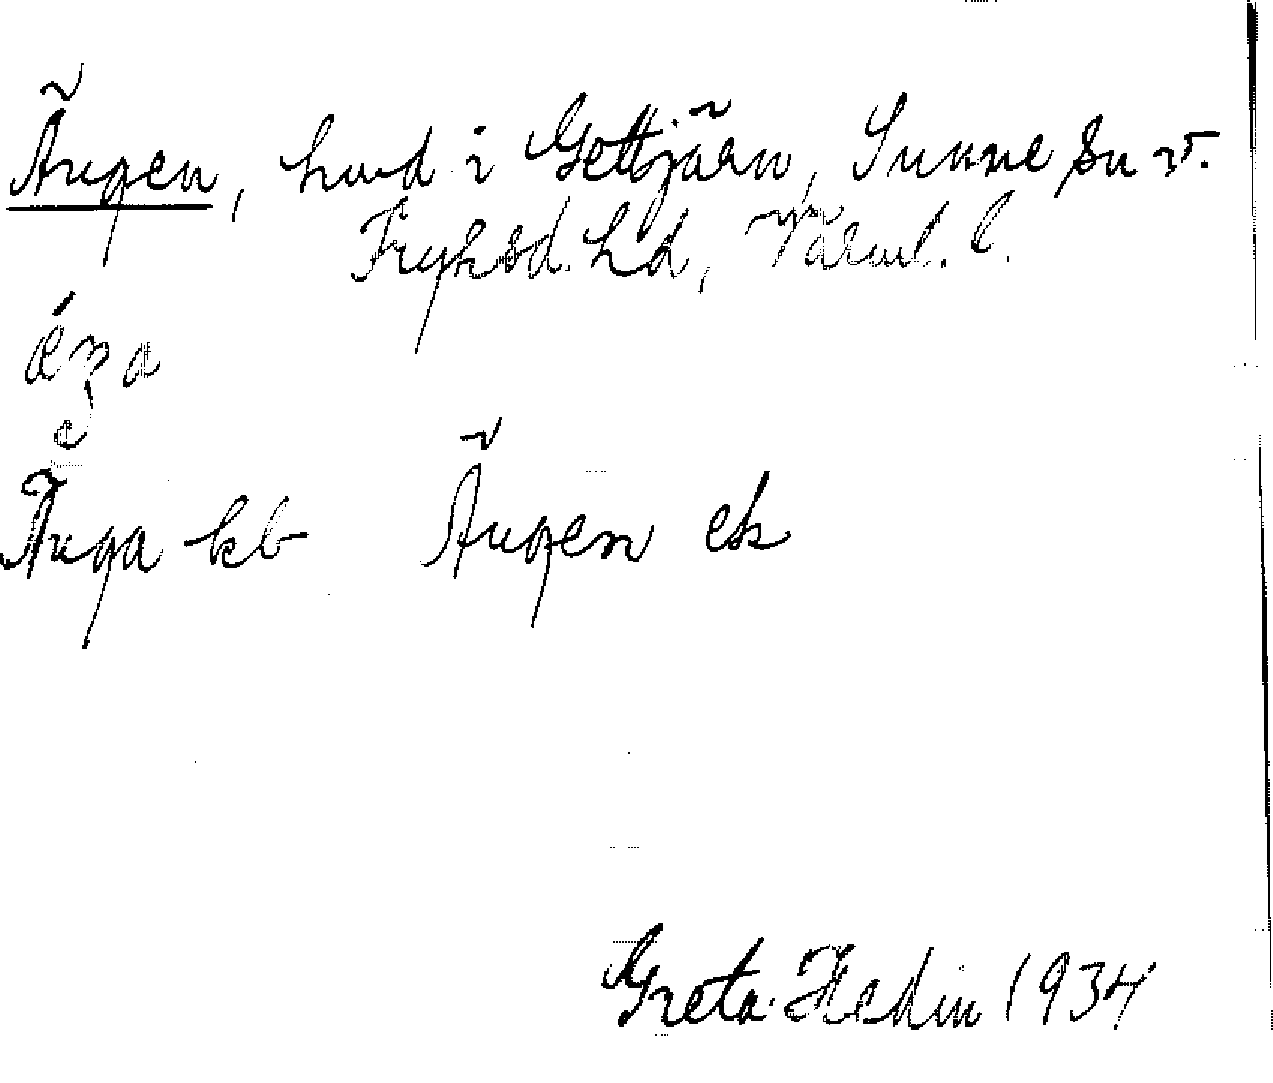 Ängen, hmd i Gettjärn, Sunne sn v.
Fryksd. hd, Värml. l.
Änga kb Ängen ek
Greta Hedin 1934